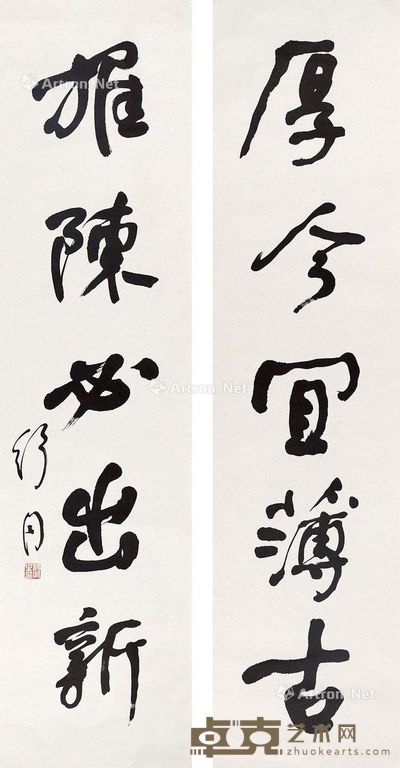 厚今宜薄古
推陳必出新
舒同
Artron.Net
Artron.Net
Artron.Net
Artron.Net
卓克艺术网
zhuokearts.com